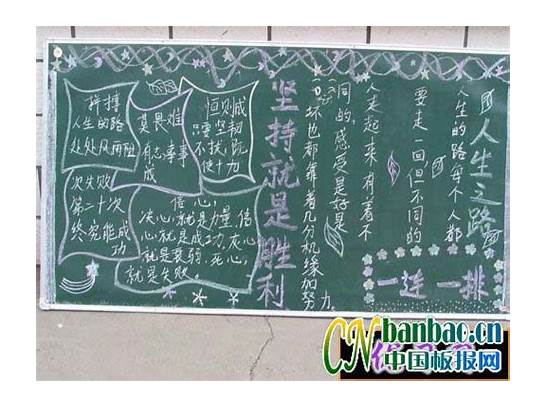 人生之路
人生的路每个人都
要走一回但不同的
人走起来有着不
同的,感受是好是
坏也都靠着几分机缘加努力
一连一排
坚持就是胜利
拼搏
人生的路
处处风雨阻
莫畏难
有志事事
成
恒则成
要坚韧
不扰
使十力
次失败
第二十次
终究能成
功
信心,
决心,就是力量,信
心,就是成功,灰心,
就是衰弱,死心,
就是失败。
CNbanbao.cn
中国板报网